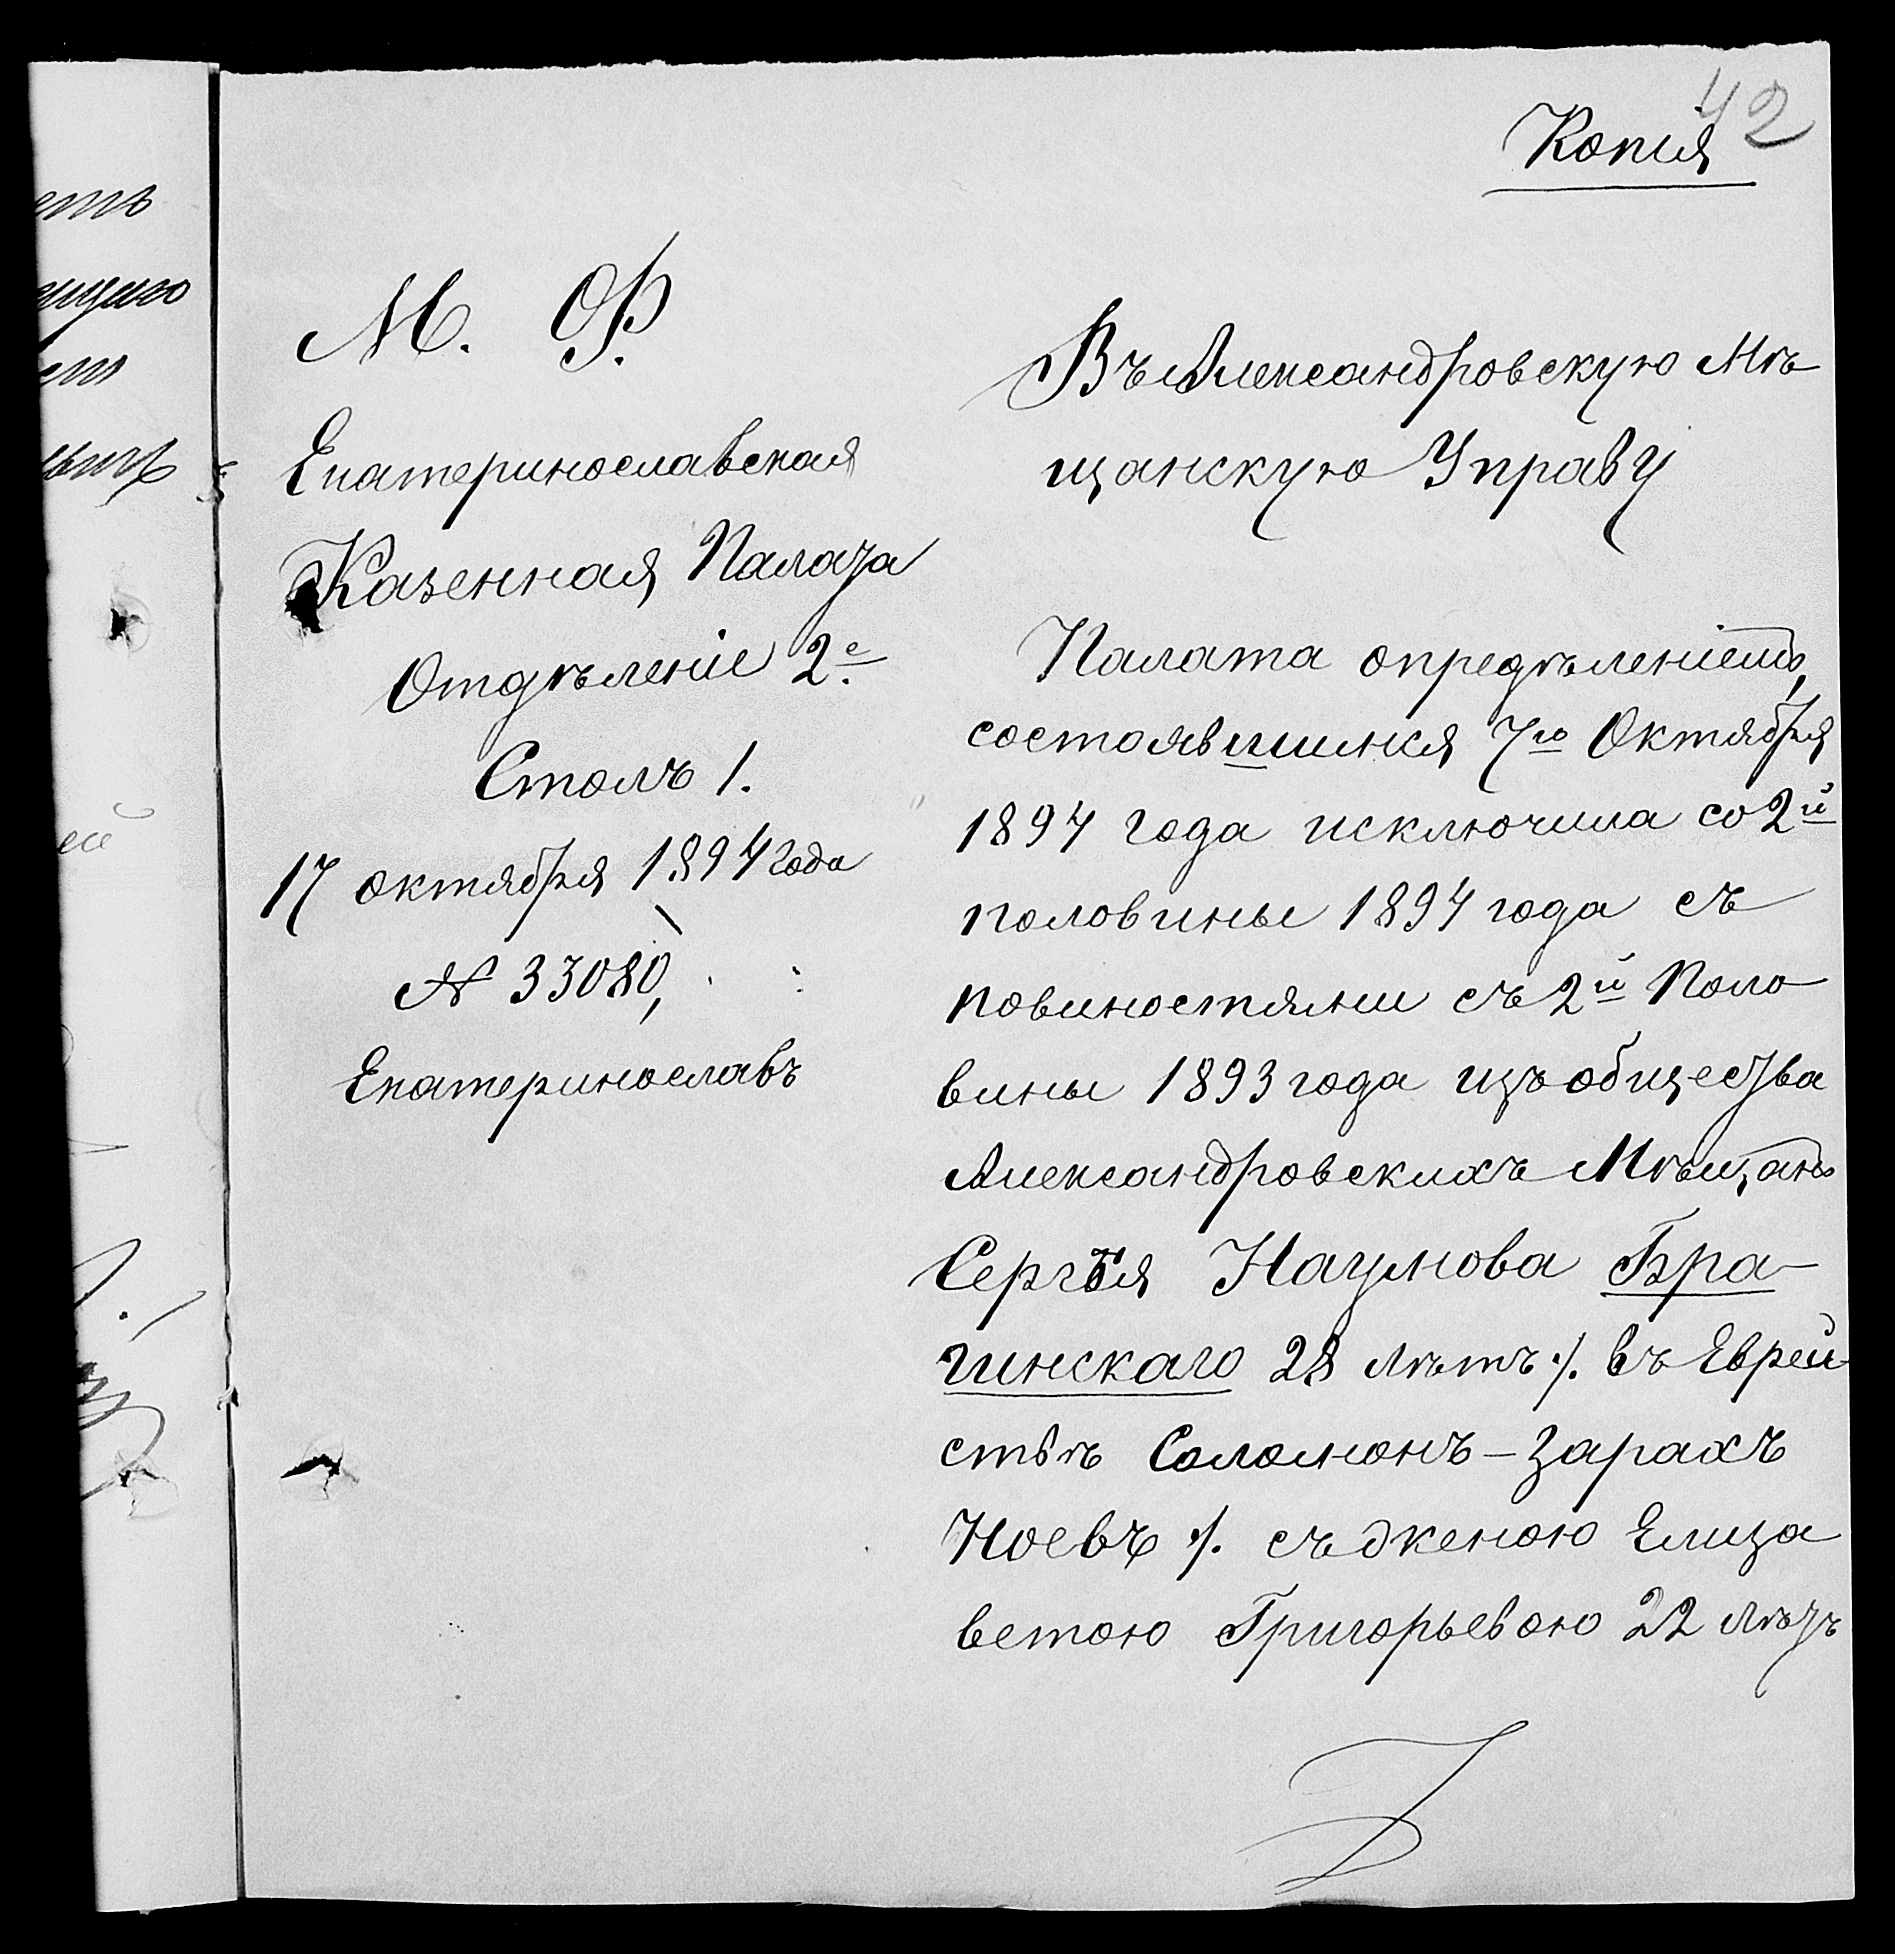 42
Копія
М. Ф.
Екатеринославская
Казенная Палата
Отдѣленіе 2е.
Столъ 1.
17 октября 1894 года
№ 33080,
Екатеринославъ
Въ Александровскую Мѣ
щанскую Управу
Палата опредѣленіемъ,
состоявшимся 7го Октября
1894 года исключила со 2й
половины 1894 года съ
повиностями съ 2й Поло
вины 1893 года изъ общества
Александровскихъ Мѣщанъ
Сергѣя Наумова Бра-
гинскаго 28 лѣтъ ./. въ Еврей
ствѣ Соломонъ-Зарахъ
Ноевъ ./. съ женою Елиза
ветою Григорьевою 22 лѣтъ